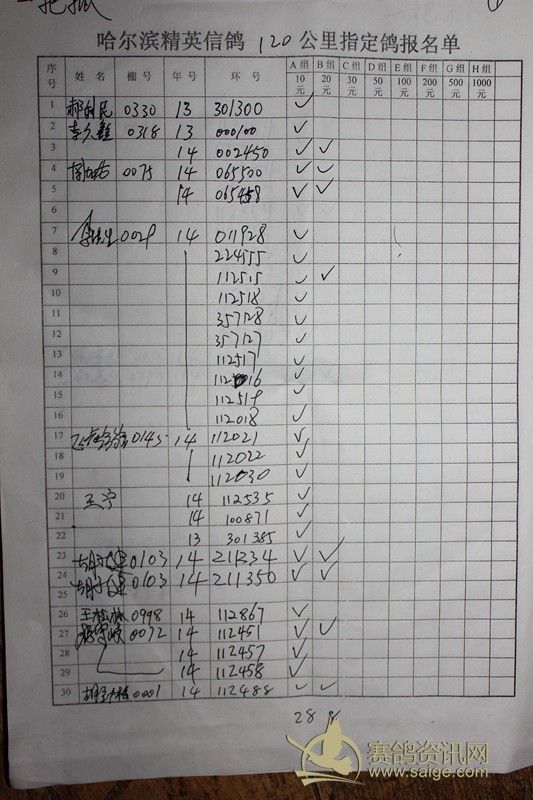 ①
哈尔滨精英信鸽 120 公里指定鸽报名单
序号 姓 名 棚 号 年 号 环 号 A 组 10 元 B 组 20 元 C 组 30 元 D 组 50 元 E 组 100 元 F 组 200 元 G 组 500 元 H 组 1000 元
1 0330 13 301300 ✓
2 李久鑫 0318 13 000100 ✓
3 14 002450 ✓ ✓
4 0075 14 065500 ✓ ✓
5 14 065458 ✓ ✓
6
7 0029 14 011928 ✓
8 224555 ✓
9 112515 ✓ ✓
10 112518 ✓
11 357128 ✓
12 357127 ✓
13 112517 ✓
14 112516 ✓
15 112519 ✓
16 112018 ✓
17 0145 14 112021 ✓
18 112022 ✓
19 112030 ✓
20 王宁 14 112535 ✓
21 14 100871 ✓
22 13 301385 ✓
23 0103 14 211334 ✓ ✓
24 0103 14 211350 ✓ ✓
25
26 王桂林 0998 14 112867 ✓
27 0072 14 112451 ✓ ✓
28 14 112457 ✓
29 14 112458 ✓
30 0001 14 112488 ✓ ✓
28 8
赛鸽资讯网
www.saige.com